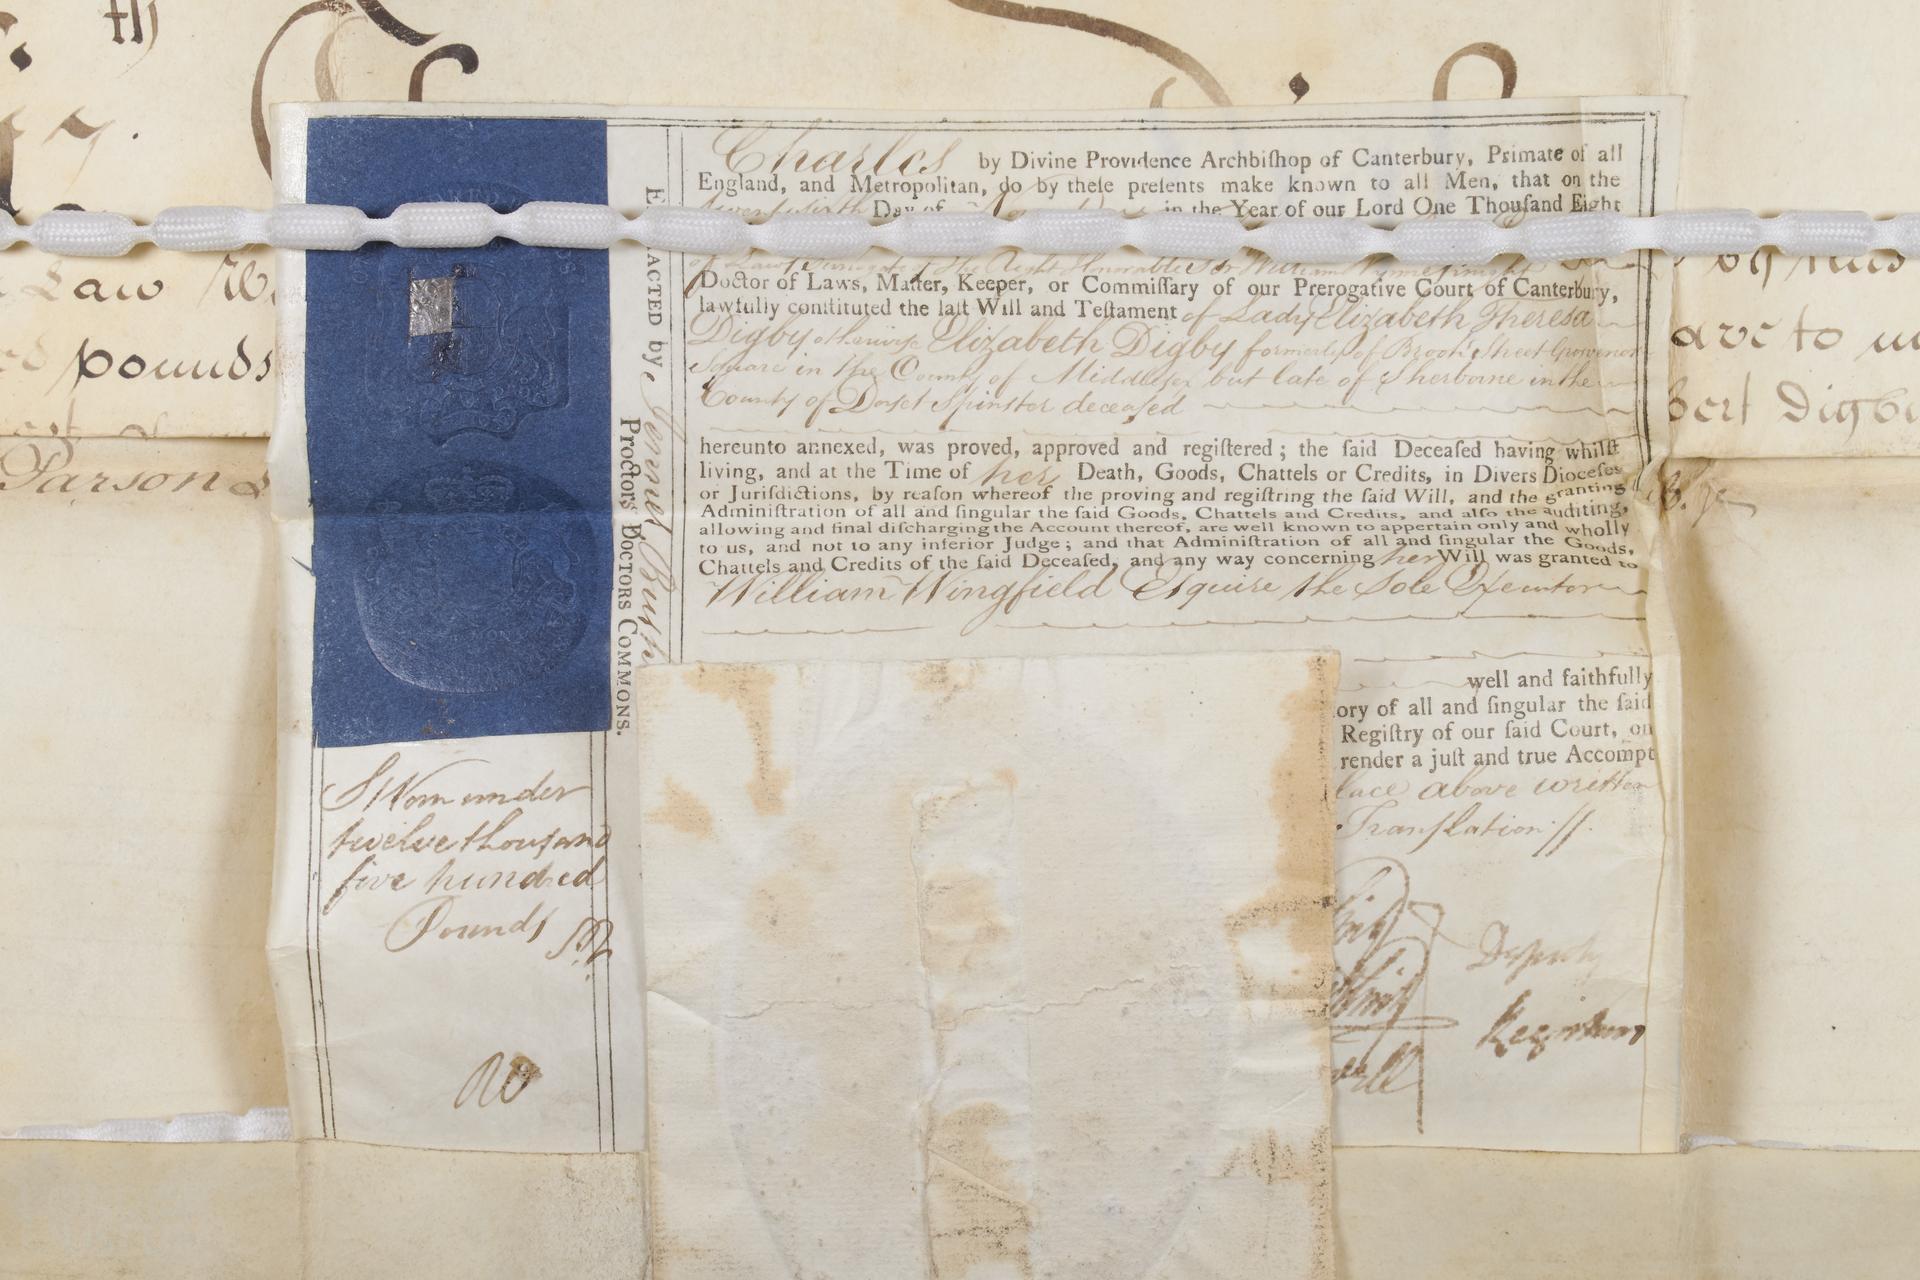 th
Law
pounds
Parson &
Charles by Divine Providence Archbiſhop of Canterbury, Primate of all
England, and Metropolitan, do by theſe preſents make known to all Men, that on the
Day of in the Year of our Lord One Thouſand Eight
of Laws Surrogate of the Right Honorable Sir William Wynne Knight
Doctor of Laws, Maſter, Keeper, or Commiſſary of our Prerogative Court of Canterbury,
lawfully conſtituted the laſt Will and Teſtament of Lady Elizabeth Theresa
Digby otherwise Elizabeth Digby formerly of Brook Street Grosvenor
Square in the County of Middleſex but late of Sherborne in the
County of Dorset Spinster deceaſed
hereunto annexed, was proved, approved and regiſtered; the ſaid Deceaſed having whilſt
living, and at the Time of her Death, Goods, Chattels or Credits, in Divers Dioceſes
or Juriſdictions, by reaſon whereof the proving and regiſtring the ſaid Will, and the granting
Adminiſtration of all and ſingular the ſaid Goods, Chattels and Credits, and alſo the auditing,
allowing and final diſcharging the Account thereof, are well known to appertain only and wholly
to us, and not to any inferior Judge; and that Adminiſtration of all and ſingular the Goods,
Chattels and Credits of the ſaid Deceaſed, and any way concerning her Will was granted to
William Wingfield Esquire the Sole Executor
well and faithfully
ory of all and ſingular the ſaid
Regiſtry of our ſaid Court, on
render a juſt and true Accompt
lace above written
Tranſlation //.
Deputy
Registers
EXTRACTED by
Proctors Doctors Commons.
Sworn under
twelve thouſand
five hundred
Pounds
ave to
bert Digby